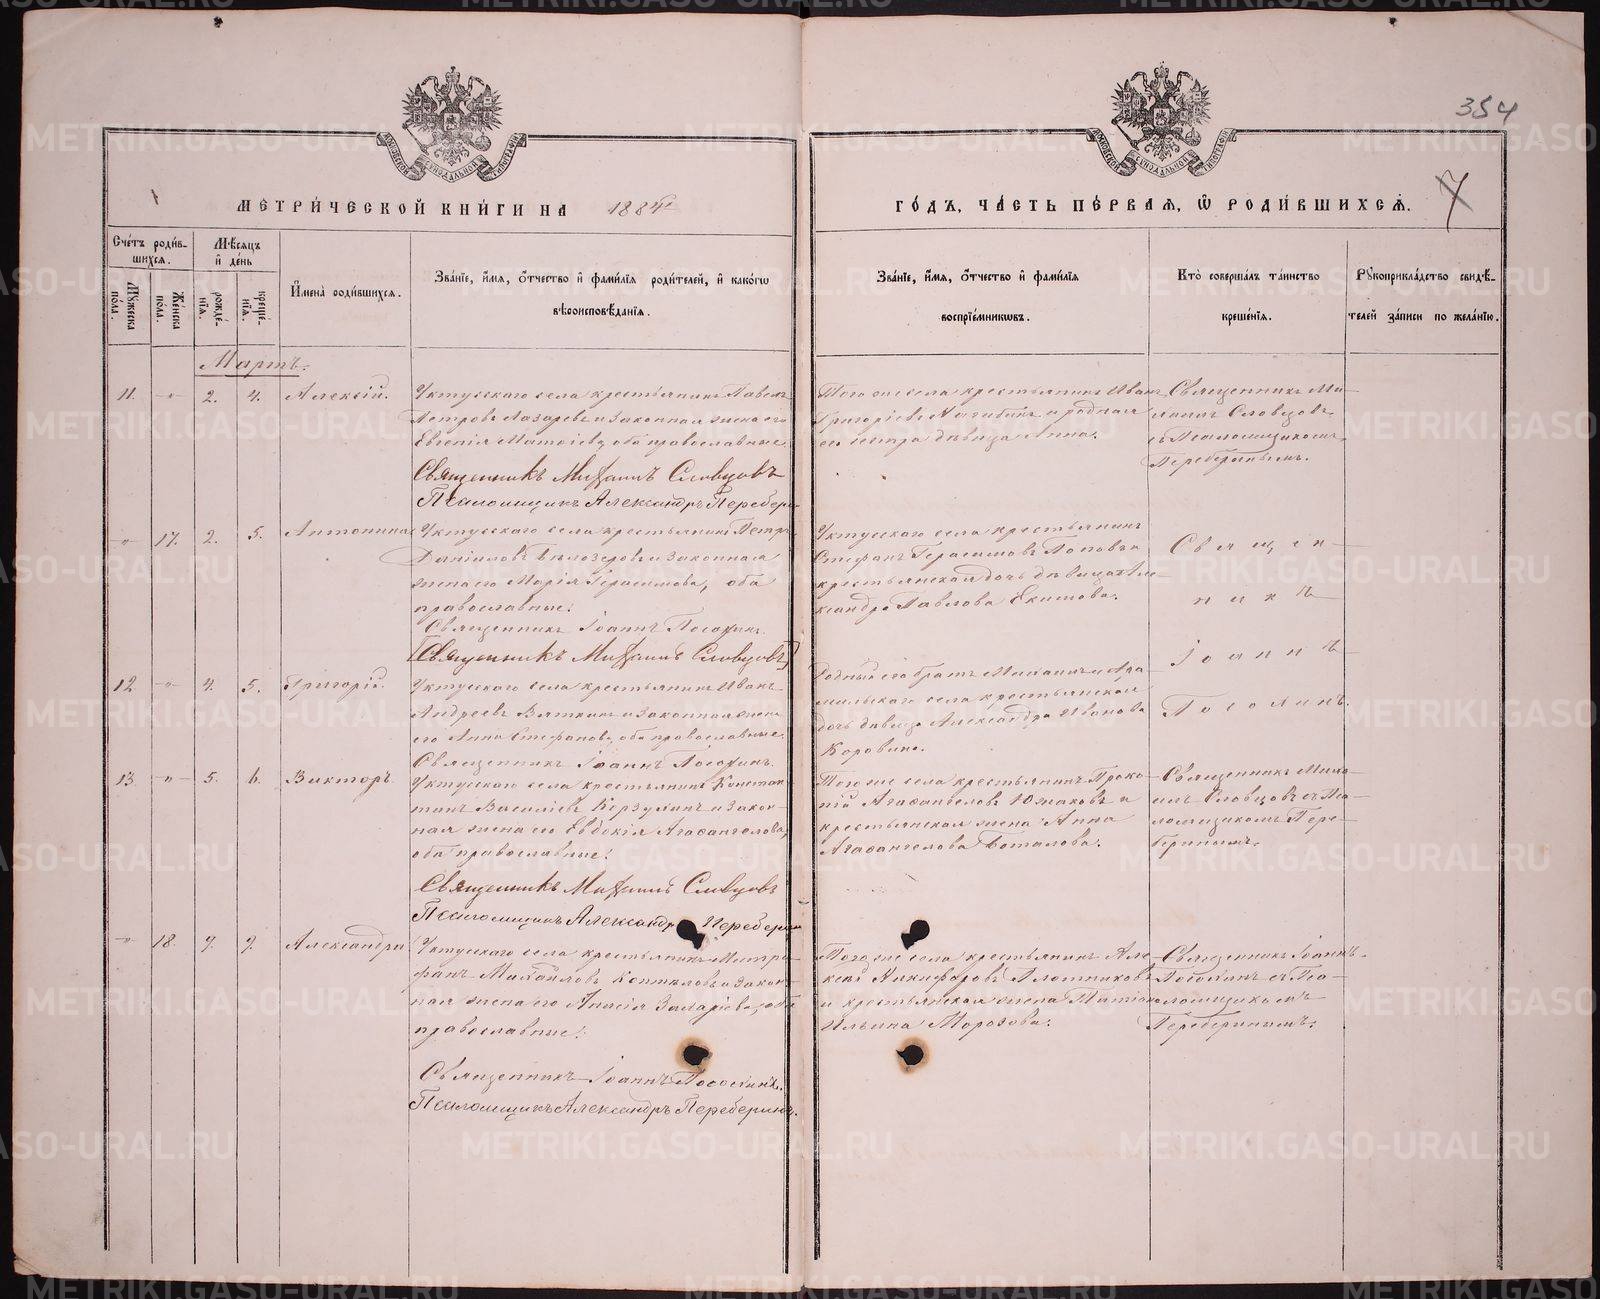 354
7
МЕТРИ́ЧЕСКОЙ КНИ́ГИ НА 1884й
ГО́ДЪ, ЧА́СТЬ ПЕ́РВАЯ, Ѡ РОДИ́ВШИХСЯ.
Сче́тъ роди́в-
шихся.
Мѣ́сяцъ
и де́нь
Мꙋжеска
по́ла.
Же́нска
по́ла.
рожде́-
нїя.
креще́-
нїя.
И҆мена̀ роди́вшихся.
Зва́нїе, и҆́мя, ѻ҆́тчество и҆ фами́лїя роди́телей, и҆ како́гѡ
вѣроисповѣ́данїя.
Зва́нїе, и҆́мя, ѻ҆́тчество и҆ фами́лїя
воспрїе́мникѡвъ.
Кто̀ соверша́лъ та́инство
креще́нїя.
Рꙋкоприкла́дство свидѣ́-
телей за́писи по жела́нїю.
Мартъ.
11. -"- 2. 4. Алексій.
Уктусскаго села крестьянинъ Павелъ
Петровъ Лазаревъ и законная жена его
Евгенія Матѳіева, оба православные
Священникъ Михаилъ Словцовъ
Псаломщикъ Александръ Переберин
Того же села крестьянинъ Иванъ
Григоріевъ Нагибинъ и родная
его сестра дѣвица Анна.
Священникъ Ми-
хаилъ Словцовъ
съ Псаломщикомъ
Переберинымъ.
-"- 17. 2. 5. Антонина
Уктусскаго села крестьянинъ Петръ
Даніиловъ Бѣлозеровъ и законная
жена его Марія Герасимова, оба
православные.
Священникъ Іоаннъ Пософинъ.
[Священникъ Михаилъ Словцовъ]
Уктускаго села крестьянинъ
Стефанъ Герасимовъ Поповъ и
крестьянская дочь дѣвица Але-
ксандра Павлова Екимова.
Священ-
никъ
Іоаннъ
12 -"- 4. 5. Григорій.
Уктусскаго села крестьянинъ Иванъ
Андреевъ Вяткинъ и законная жена
его Анна Стефанова, оба православные
Священникъ Іоаннъ
Родный его брат Михаилъ и Ара-
мильскаго села крестьянская
дочь дѣвица Александра Иванова
Коровина.
13 -"- 5. 6. Викторъ
Уктусскаго села крестьянинъ Констан-
тинъ Василіевъ Корзунинъ и закон-
ная жена его Евдокія Агафангелова,
оба православные.
Священникъ Михаилъ Словцовъ
Псаломщикъ Александръ Перебери
Того же села крестьянинъ Проко-
пій Агафангеловъ Южаковъ и
крестьянская жена Анна
Агафангелова Боталова.
Священникъ Миха-
илъ Словцовъ съ Пса-
ломщикомъ Пере-
беринымъ.
-"- 18. 9. 9. Александра
Уктусскаго села крестьянинъ Митро-
фанъ Михайловъ Коптяловъ и закон-
ная жена его Анисія Захаріева, оба
православные.
Священникъ Іоаннъ
Псаломщикъ Александръ Переберинъ.
Того же села крестьянинъ Але-
ксѣй Никифоровъ Плотниковъ
и крестьянская жена Татіана
Ильина Морозова.
Священникъ Іоаннъ
съ Пса-
ломщикомъ
Переберинымъ.